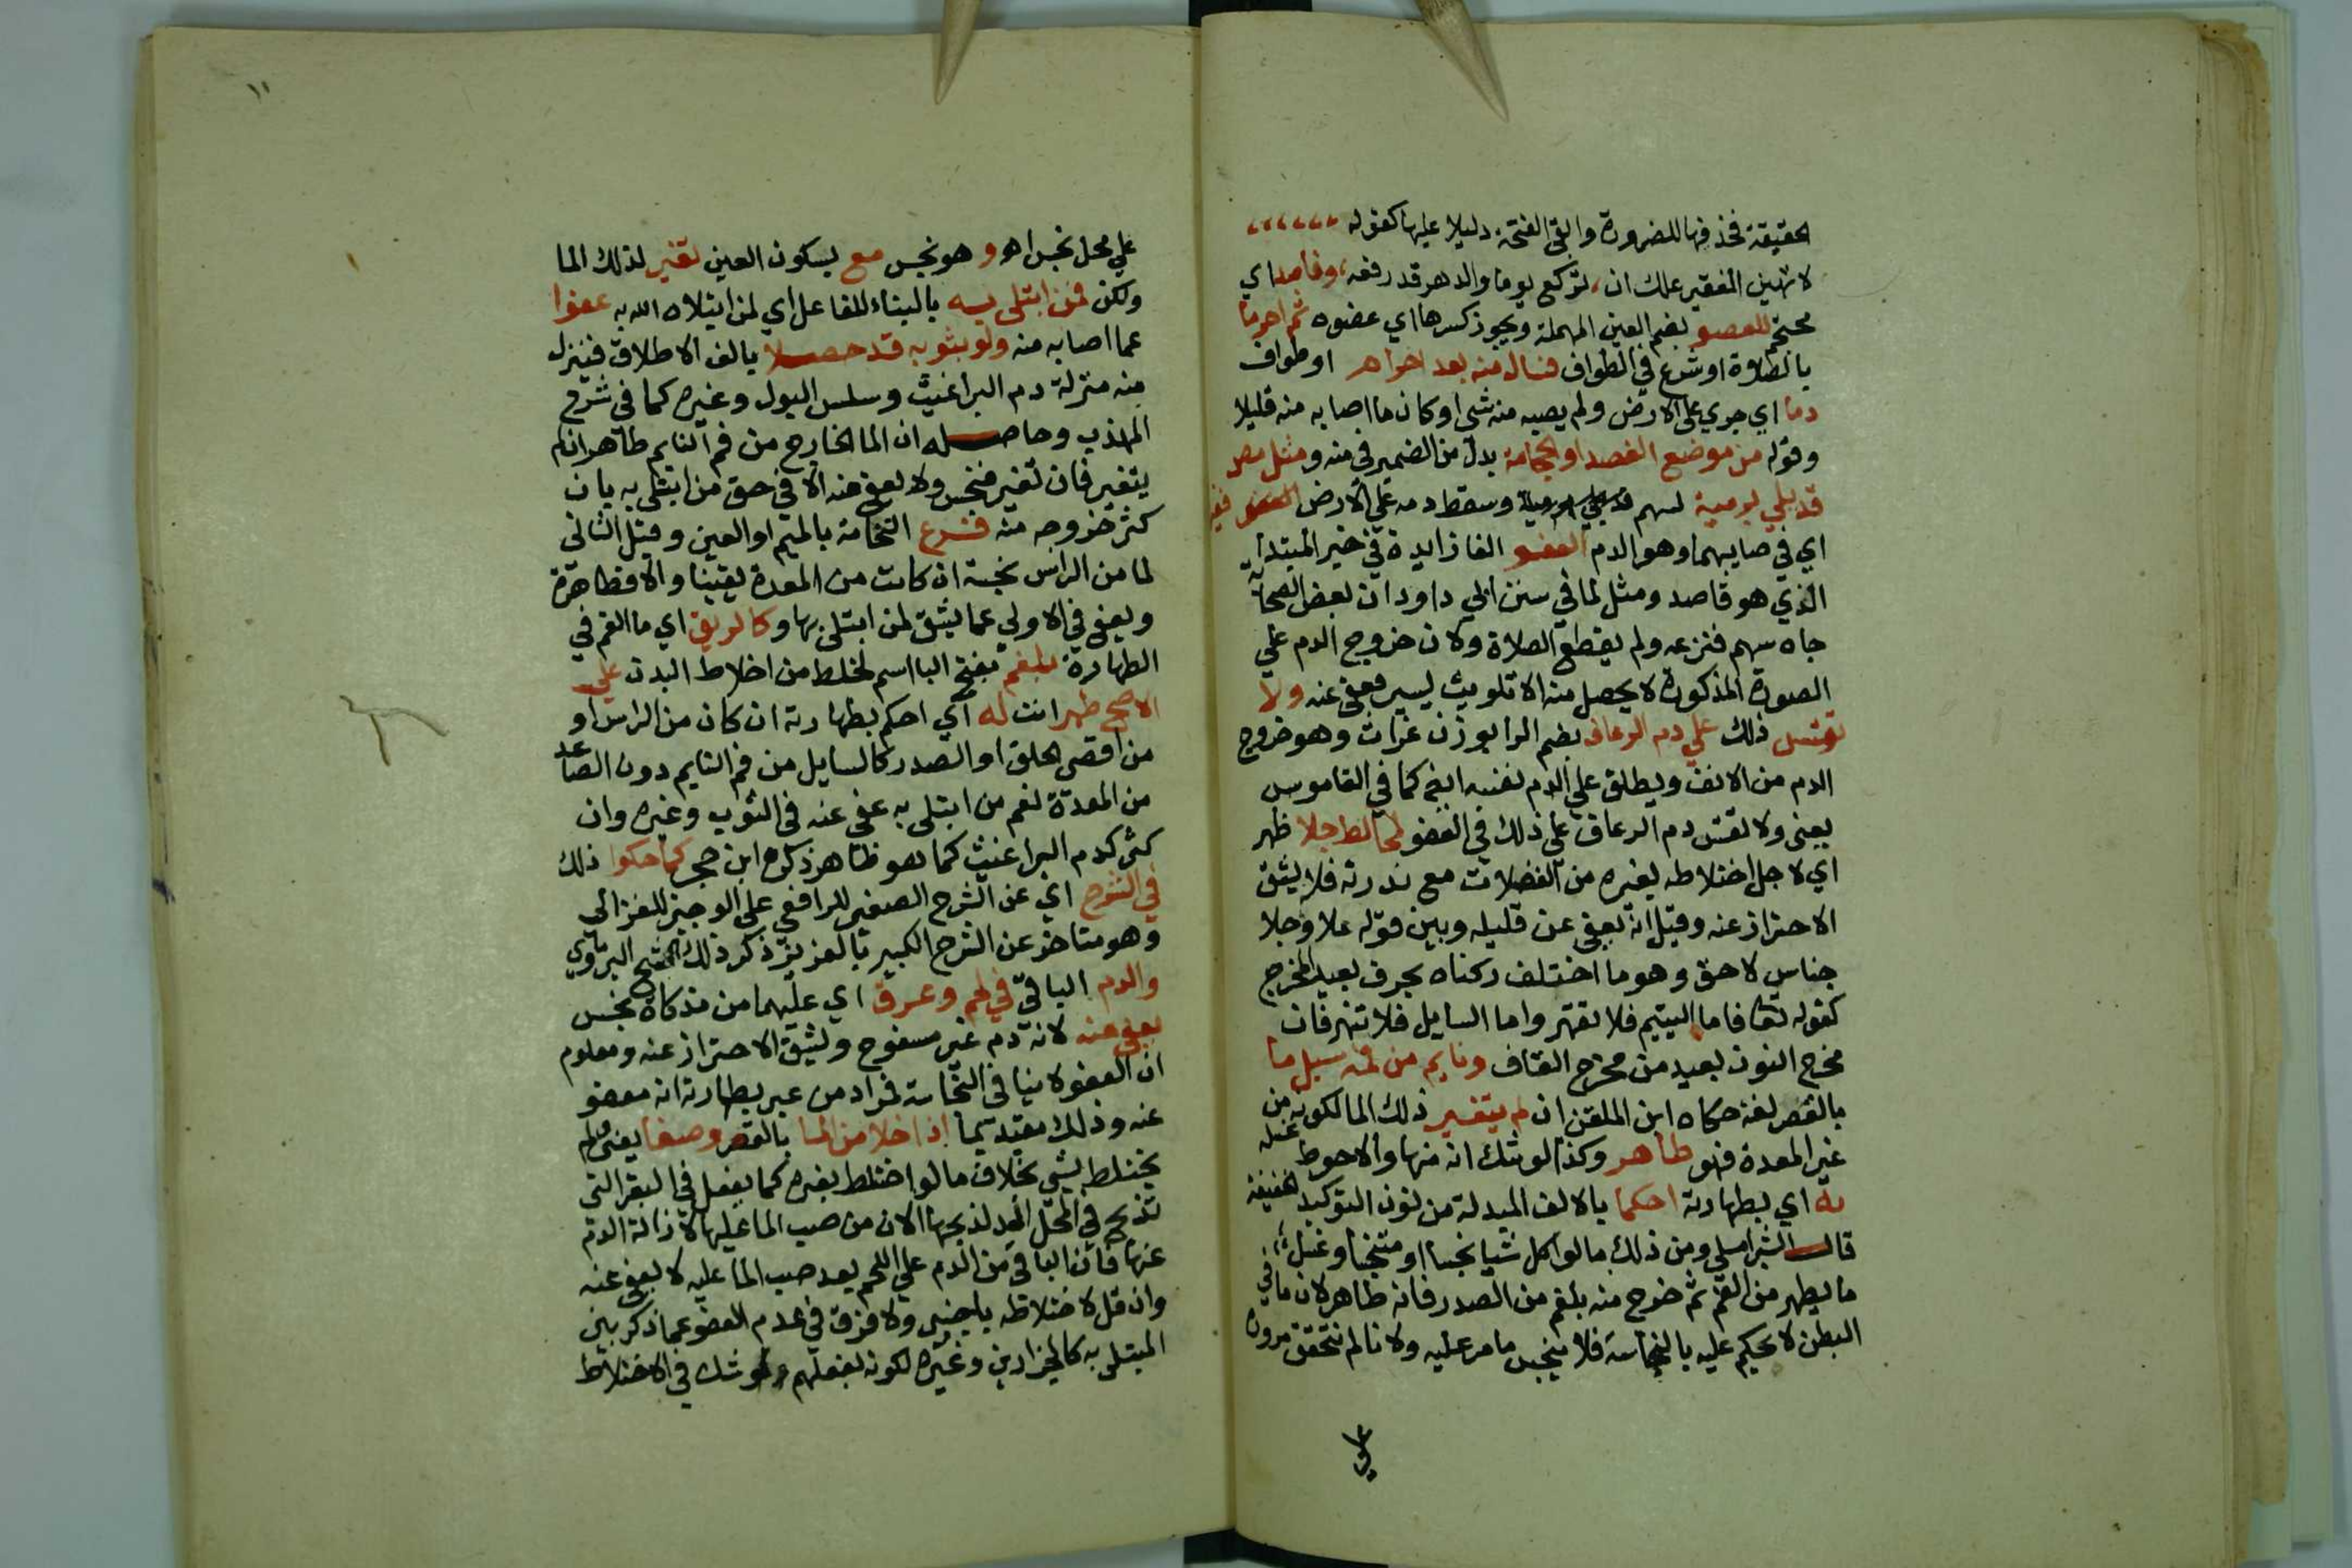 الحقيقة فحذفها للضرورة وابقي الفتحة دليلا عليها كقوله
لا تهين الفقير علك ان، تركع يوما والدهر قد رفعه، وفاصد اي
محتجم للعضو بضم العين المهملة ويجوز كسرها اي عضوه ثم احرما
بالصلاة او شرع في الطواف فسال منه بعد احرام او طواف
دما اي جري علي الارض ولم يصبه منه شي او كان ما اصابه منه قليلا
وقوله من موضع الفصد او الحجامة بدل من الضمير في منه ومثل من
قد بلي برمية لسهم وسقط دمه علي الارض
اي في صاييهما وهو الدم العفو الفا زايدة في خبر المبتدا
الذي هو فاصد ومثل لما في سنن ابي داود ان بعض الصحابة
جاه سهم فنزعه ولم يقطع الصلاة ولان خروج الدم علي
الصورة المذكورة لا يحصل منه الا تلويث يسير فعفي عنه ولا
تقس ذلك علي دم الرعاف بضم الرا بوزن غراب وهو خروج
الدم من الانف ويطلق علي الدم نفسه ايضا كما في القاموس
يعني ولا تقس دم الرعاف علي ذلك في العفو لخالط جلا ظهر
اي لاجل اختلاطه بغيره من الفضلات مع ندرته فلا يشق
الاحتراز عنه وقيل انه يعفي عن قليله وبين قوله علا وجلا
جناس لاحق وهو ما اختلف ركناه بحرف بعيد المخرج
كقوله تعا فاما اليتيم فلا تقهر واما السايل فلا تنهر فان
مخرج النون بعيد من مخرج القاف ونايم من فمه سيل ما
بالقصر لغة حكاه ابن الملقن ان لم يتغير ذلك الما لكونه من
غير المعدة فهو طاهر وكذا لو شك انه منها والاحوط غسله
به اي بطهارته احكما بالالف المبدلة من نون التوكيد الخفيفة
قال الشبراملسي ومن ذلك ما لو اكل شيا نجسا او متنجسا وغسل
ما يظهر من الفم ثم خرج منه بلغم من الصدر فانه طاهر لان ما في
البطن لا يحكم عليه بالنجاسة فلا ينجس ما مر عليه ولانا لم نتحقق مروره
علي
١١
علي محل نجس اه و هو نجس مع بسكون العين تغير لذلك الما
ولكن لمن ابتلي به بالبناء للفاعل اي لمن ابتلاه الله به عفوا
عما اصابه منه ولو بثوبه قد حصلا بالف الاطلاق فينزل
منه منزلة دم البراغيث وسلس البول وغيره كما في شرح
المهذب وحاصله ان الما الخارج من فم النايم طاهر ان لم
يتغير فان تغير فنجس ولا يعفي عنه الا في حق من ابتلي به بان
كثر خروجه منه فرع النخامة بالميم او العين وقيل الثاني
لما من الراس نجسة ان كانت من المعدة يقينا والا فطاهرة
ويعفي في الاولي عما يشق لمن ابتلي بها وكالريق اي ما الفم في
الطهارة بلغم بفتح البا اسم لخلط من اخلاط البدن علي
الاصح طهر انت له اي احكم بطهارته ان كان من الراس او
من اقصي الحلق او الصدر كالسايل من فم النايم دون الصاعد
من المعدة نعم من ابتلي به عفي عنه في الثوب وغيره وان
كثر كدم البراغيث كما هو ظاهر ذكره ابن حجر كما حكوا ذلك
في الشرح اي عن الشرح الصغير للرافعي علي الوجيز للغزالي
وهو متاخر عن الشرح الكبير بالعزيز ذكر ذلك الشيخ البرماوي
والدم الباقي في لحم وعرق اي عليهما من مذكاة نجس
يعفي عنه لانه دم غير مسفوح ولشق الاحتراز عنه ومعلوم
ان العفو لا ينافي النجاسة فمراد من عبر بطهارته انه معفو
عنه وذلك مقيد بما اذا خلا من الما بالقصر وصفا يعني لم
يختلط بشي بخلاف ما لو اختلط بغيره كما يفعل في البقر التي
تذبح في المحل المعد لذبحها الان من صب الما عليها لازالة الدم
عنها فان الباقي من الدم علي اللحم بعد صب الما عليه لا يعفي عنه
وان قل لاختلاطه باجنبي ولا فرق في عدم العفو عما ذكر بين
المبتلي به كالجزارين وغيره لكونه بفعلهم ولو شك في الاختلاط